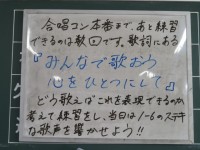 合唱コン本番まで、あと練習
できるのは数回です。歌詞にある
『みんなで歌おう
心をひとつにして』
どう歌えばこれを表現できるのか
考えて練習をし、当日は1-6のステキ
な歌声を響かせよう!!